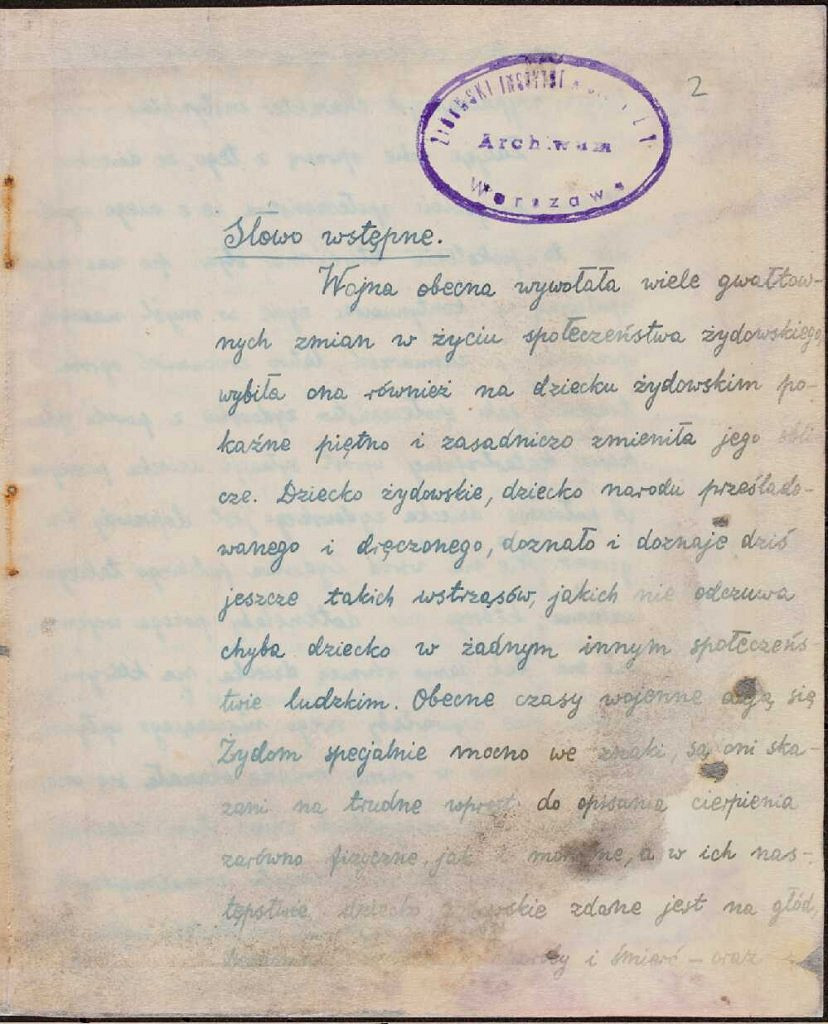 2
ŻYDOWSKI INSTYTUT
Archiwum
Warszawa
Słowo wstępne.
Wojna obecna wywołała wiele gwałtow-
nych zmian w życiu społeczeństwa żydowskiego,
wybiła ona również na dziecku żydowskim po-
kaźne piętno i zasadniczo zmieniła jego obli
cze. Dziecko żydowskie, dziecko narodu prześlado-
wanego i dręczonego, doznało i doznaje dziś
jeszcze takich wstrząsów, jakich nie odczuwa
chyba dziecko w żadnym innym społeczeńs-
twie ludzkim. Obecne czasy wojenne dają się
Żydom specjalnie mocno we znaki, są oni ska-
zani na trudne wprost do opisania cierpienia
zarówno fizyczne, jak i moralne, a w ich nas-
tępstwie dziecko żydowskie zdane jest na głód,
i śmierć – oraz